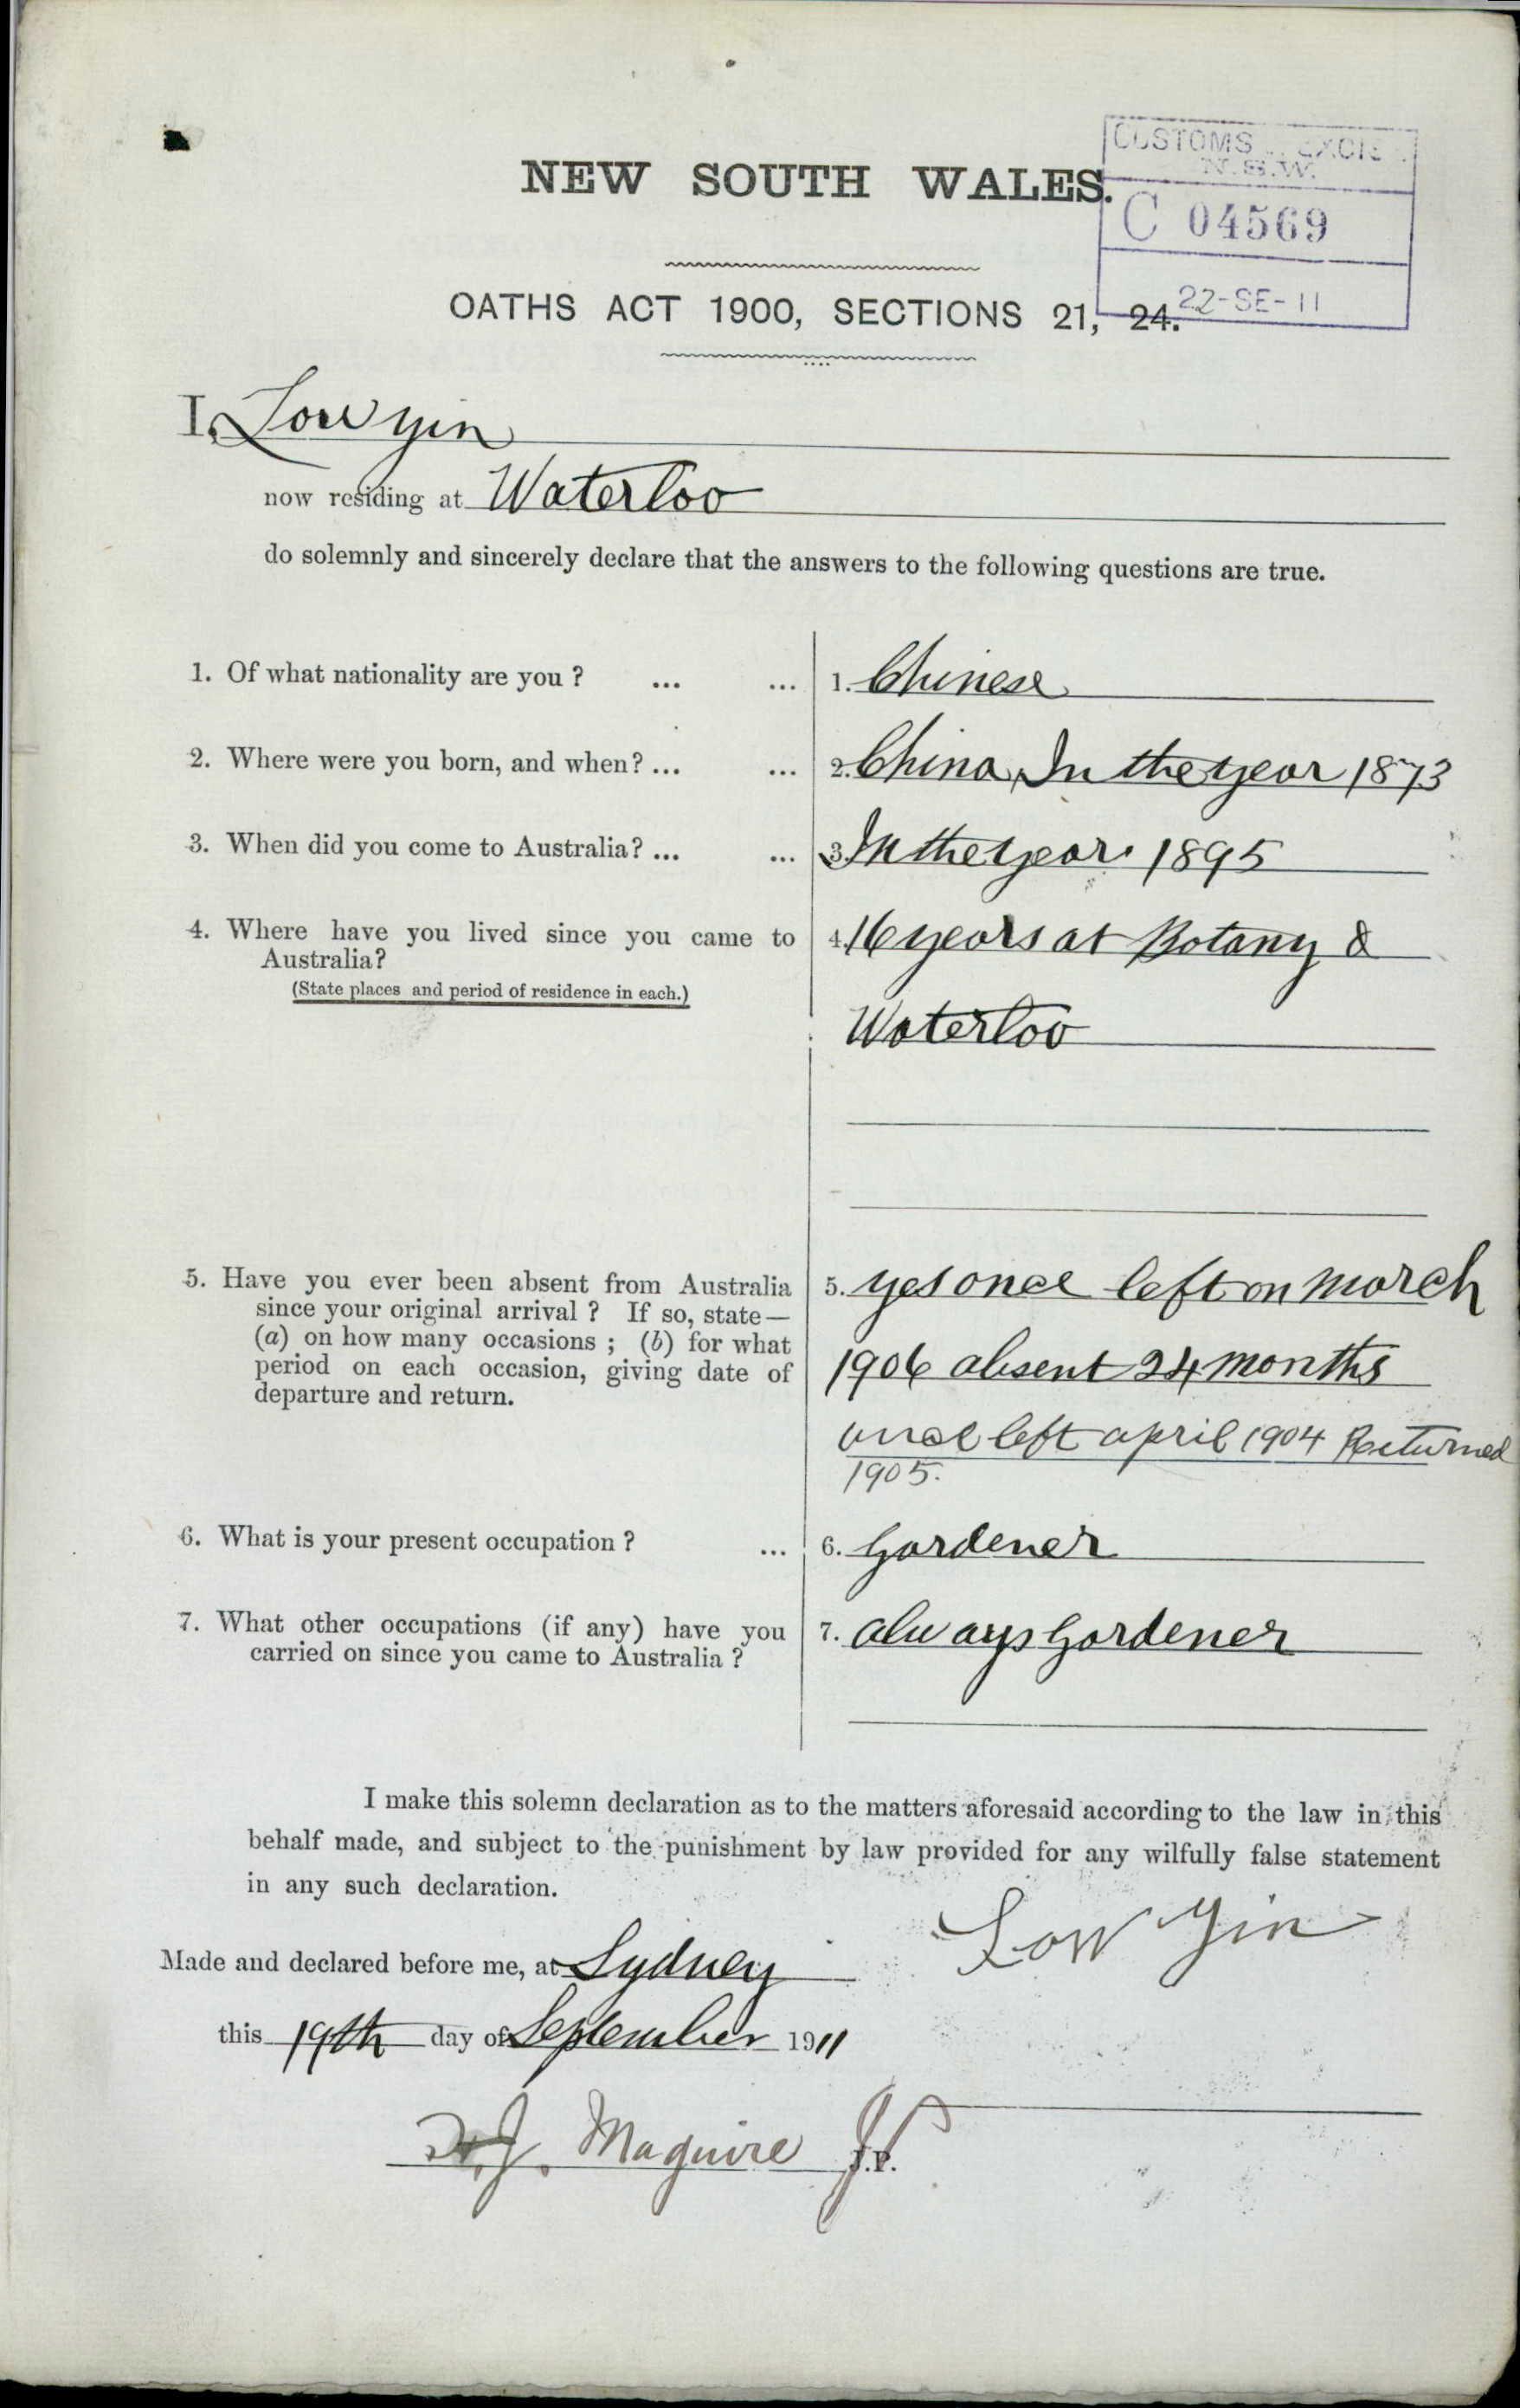 CUSTOMS & EXCISE
N.S.W.
C 04569
22-SE-11
NEW SOUTH WALES.
OATHS ACT 1900, SECTIONS 21, 24.
I, Low Yin
now residing at Waterloo
do solemnly and sincerely declare that the answers to the following questions are true.
1. Of what nationality are you ? ... ... 1. Chinese
2. Where were you born, and when? ... ... 2. China, In the year 1873
3. When did you come to Australia? ... ... 3. In the year 1895
4. Where have you lived since you came to 4. 16 years at Botany &
Australia?
(State places and period of residence in each.)
Waterloo
5. Have you ever been absent from Australia 5. yes once left on march
since your original arrival ? If so, state—
(a) on how many occasions ; (b) for what
period on each occasion, giving date of 1906 absent 24 months
departure and return.
once left april 1904 Returned
1905.
6. What is your present occupation ? ... 6. Gardener
7. What other occupations (if any) have you 7. always Gardener
carried on since you came to Australia ?
I make this solemn declaration as to the matters aforesaid according to the law in this
behalf made, and subject to the punishment by law provided for any wilfully false statement
in any such declaration.
Low Yin
Made and declared before me, at Sydney
this 19th day of September 1911
J. Maguire JP
J.P.